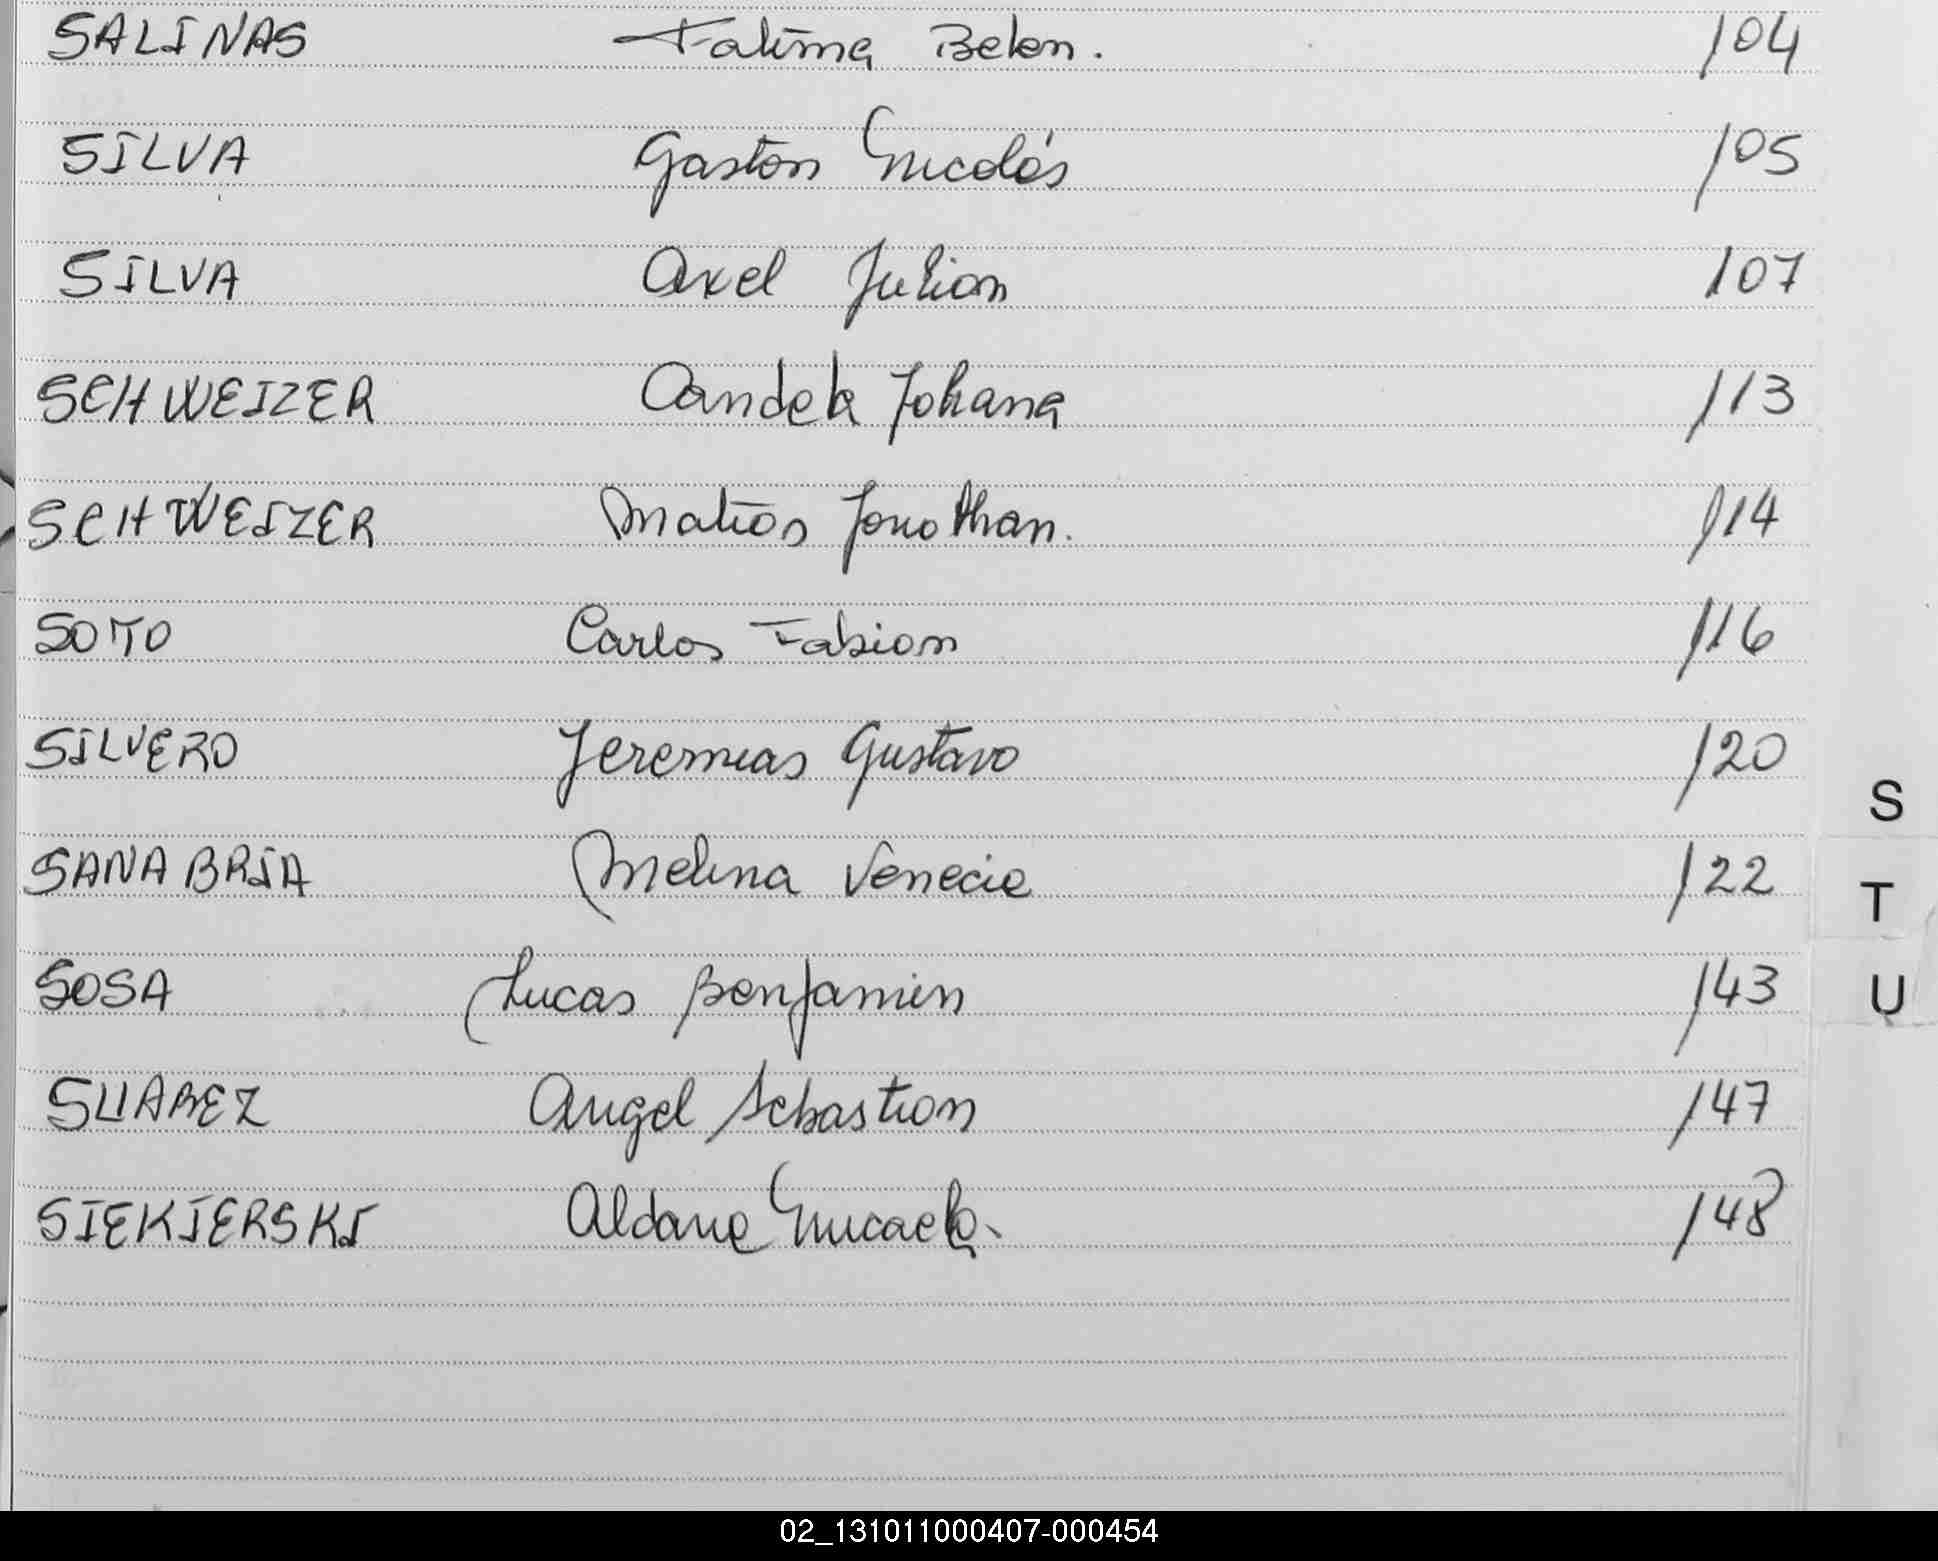 SALINAS Fatima Belen. 104
SILVA Gastón Nicolás 105
SILVA Axel Julian 107
SCHWEIZER Candela Johana 113
SCHWEIZER Matias Jonathan. 114
SOTO Carlos Fabian 116
SILVERO Jeremias Gustavo 120
S
SANABRIA Melina Venecia 122
T
SOSA Lucas Benjamin 143
U
SUAREZ Angel Sebastian 147
SIEKIERSKI Aldana Micaela. 148
02_131011000407-000454